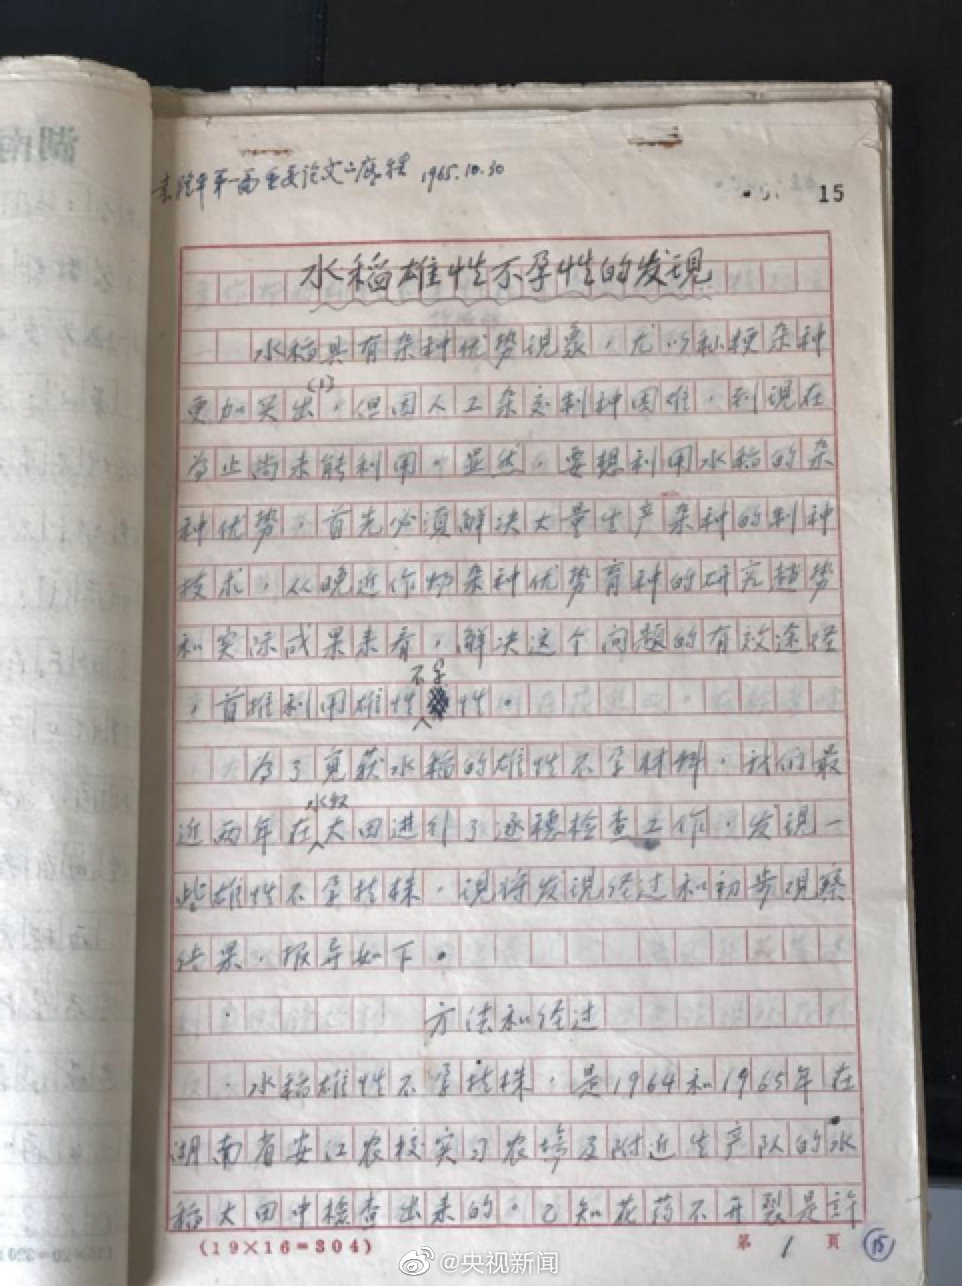 袁隆平第一篇重要论文之原稿 1965.10.30
15
水稻雄性不孕性的发现
水稻具有杂种优势现象，尤以籼粳杂种
更加突出(1)，但因人工杂交制种困难，到现在
为止尚未能利用。显然，要想利用水稻的杂
种优势，首先必须解决大量生产杂种的制种
技术，从晚近作物杂种优势育种的研究趋势
和实际成果来看，解决这个问题的有效途径
，首推利用雄性不孕性。
为了觅获水稻的雄性不孕材料，我们最
近两年在水稻大田进行了逐穗检查工作，发现一
些雄性不孕植株，现将发现经过和初步观察
结果，报导如下。
方法和经过
水稻雄性不孕植株，是1964和1965年在
湖南省安江农校实习农场及附近生产队的水
稻大田中检查出来的，已知花药不开裂是许
(19×16=304)
第 1 页
15
@央视新闻
湖南